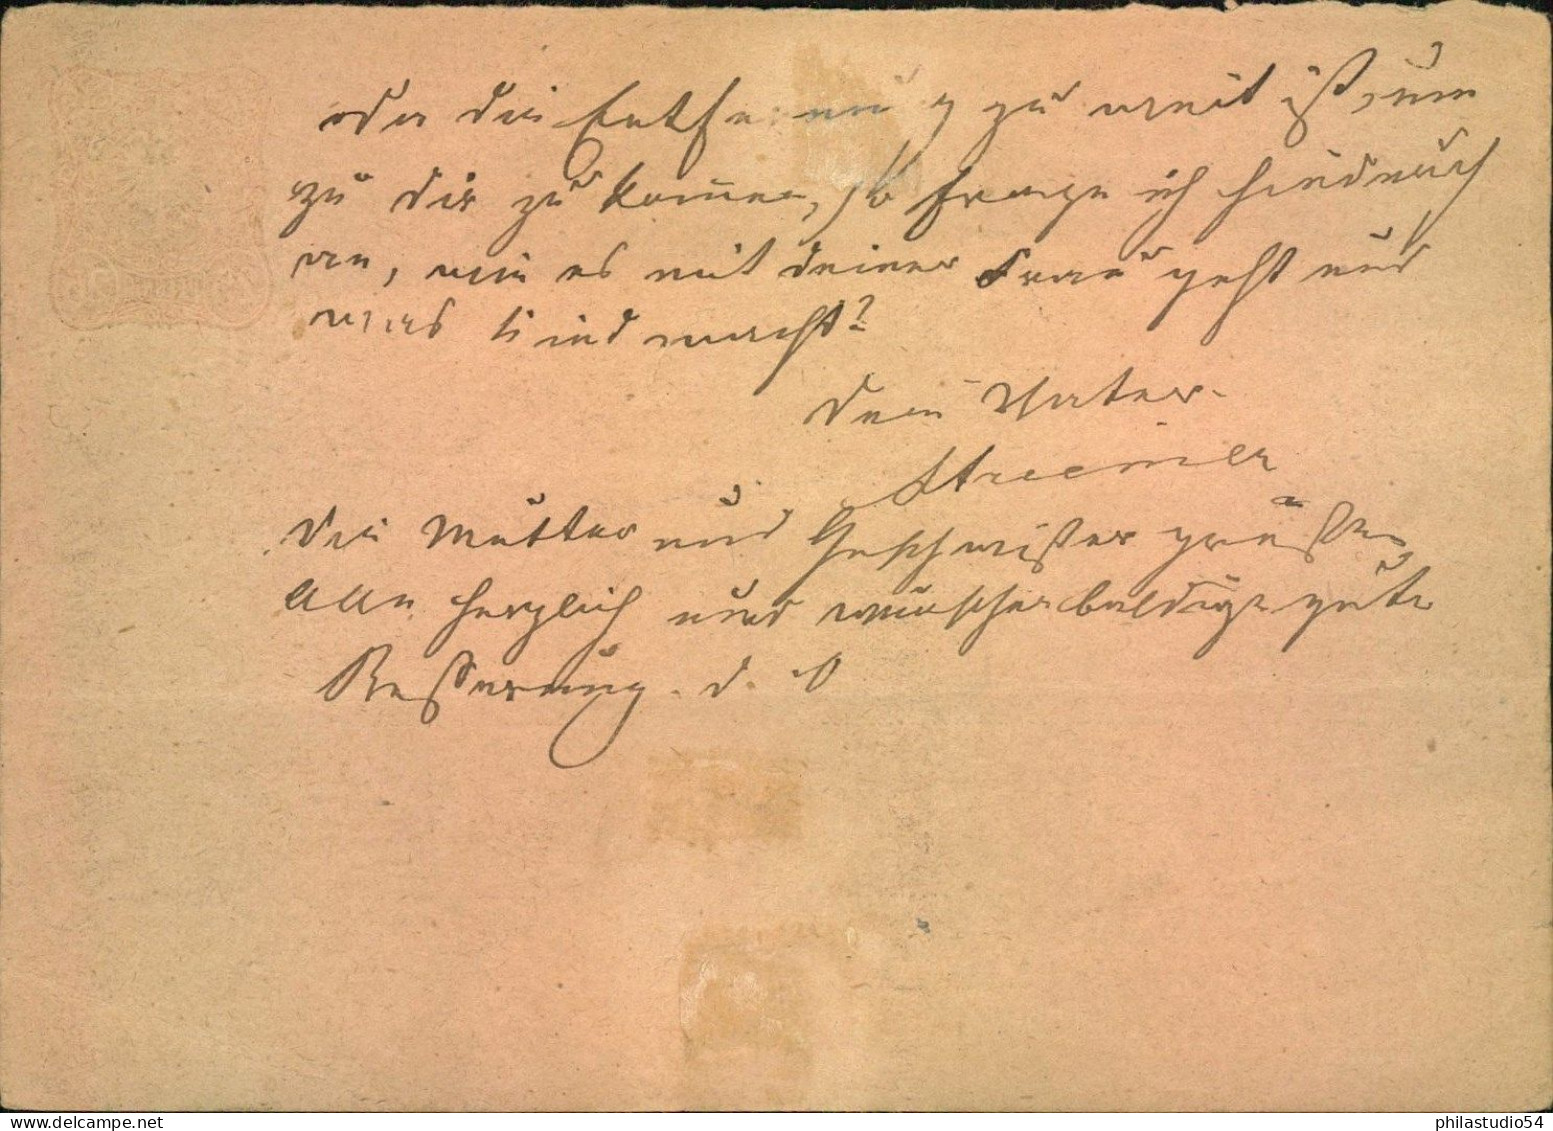 oder die Entfernung zu weit ist, um
zu dir zu kommen, so frage ich hierdurch
an, wie es mit deiner Frau geht und
was Kind macht?
Dein Vater
Die Mutter und Geschwister grüßen
alle herzlich und wünschen baldige gute
Besserung. d. O
philastudio54